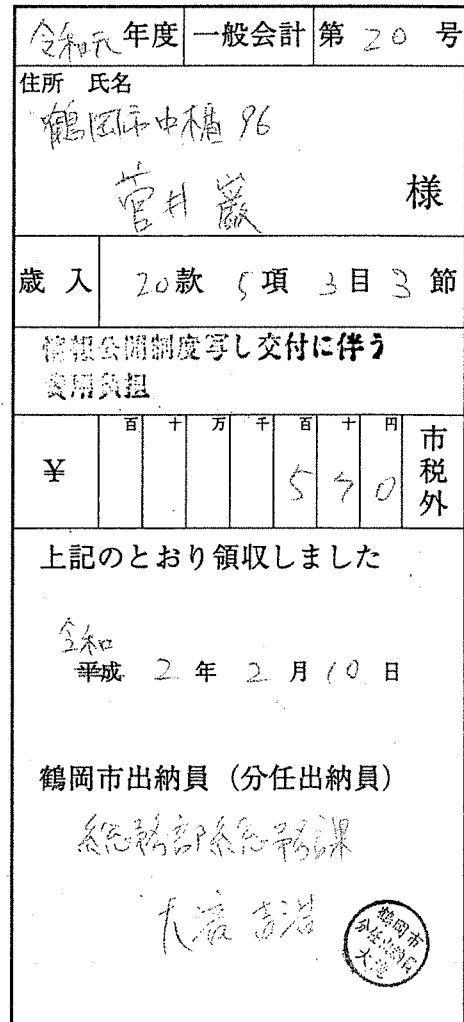 令和元年度 一般会計 第 20 号
住所 氏名
鶴岡市中楯 96
菅井 巖 様
歳入 20款 5項 3目 3節
情報公開制度写し交付に伴う
費用負担
百 十 万 千 百 十 円
¥ 5 7 0 市税外
上記のとおり領収しました
令和
平成 2 年 2 月 10 日
鶴岡市出納員（分任出納員）
総務部総務課
鶴岡市
分任出納員
大滝